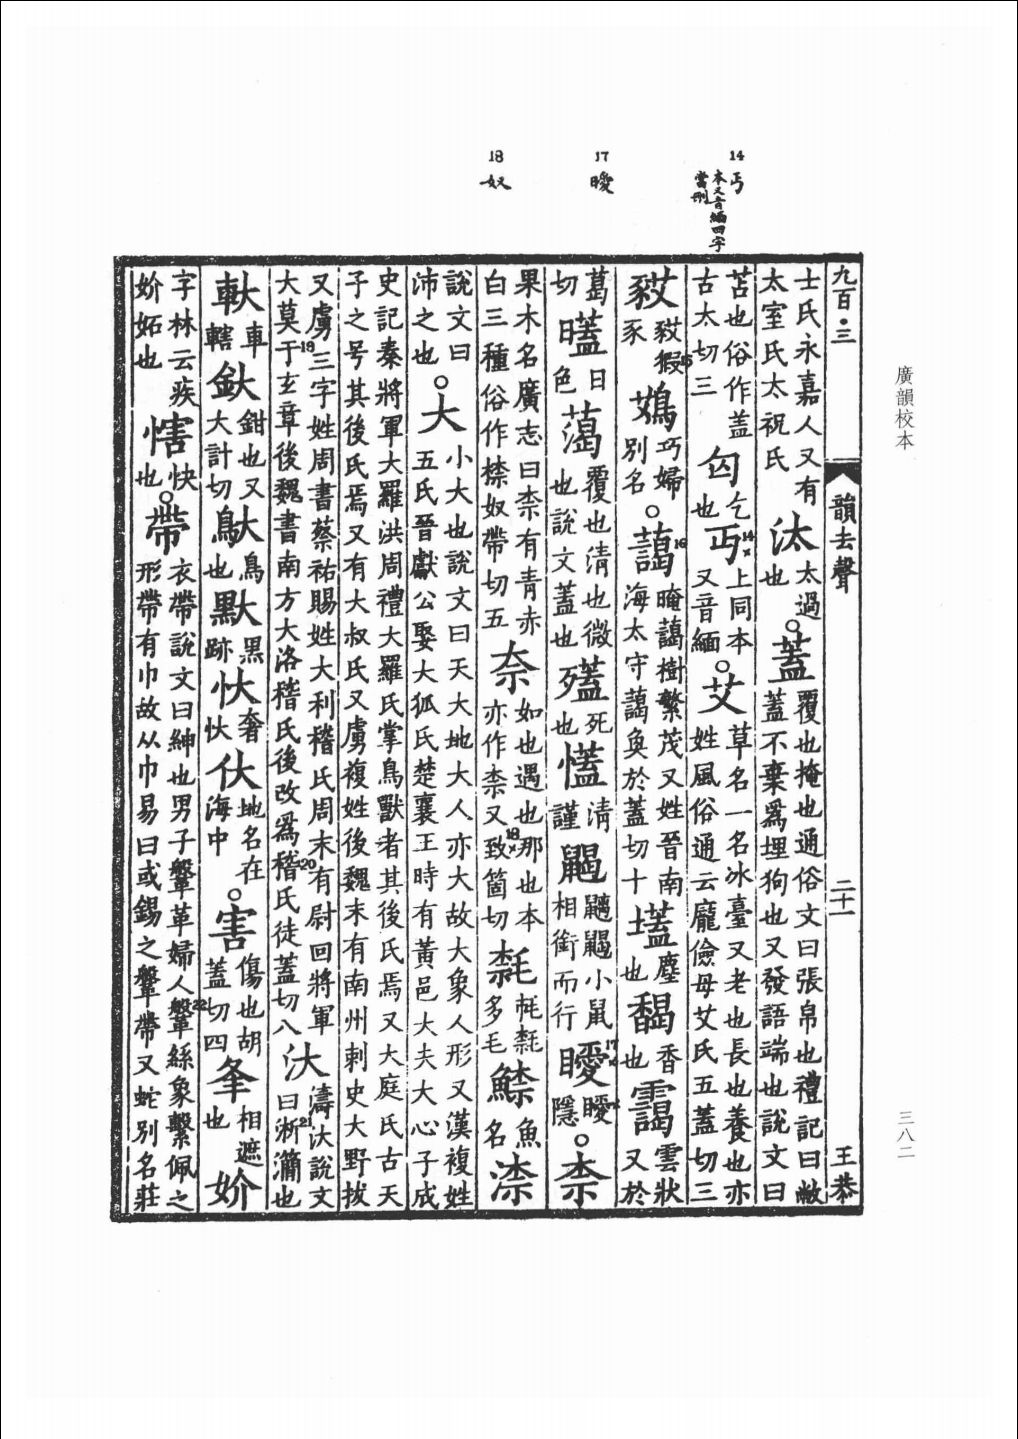 廣韻校本
三八二
14 丏 本又音緬四字當刪
17 曖
18 奴
九百·三
韻去聲
二十一
王恭
士氏永嘉人又有太室氏太祝氏 汰 太過也 ○蓋 覆也掩也通俗文曰張帛也禮記曰敝蓋不棄爲埋狗也又發語端也說文曰
苫也俗作盖古太切三 匄 乞也 丏14 上同本又音緬 ○艾 草名一名冰臺又老也長也養也亦姓風俗通云龐儉母艾氏五蓋切三
䝅 䝅豭15豕 鴱 巧婦別名 ○藹16 晻藹樹繁茂又姓晉南海太守藹奐於蓋切十 壒 塵也 馤 香也 靄 雲狀又於
葛切 㬣 日色 濭 覆也清也微也說文蓋也 㱼 死也 㦢 清謹 鼴 鼶鼴小鼠相銜而行 曖17 曖隱 ○柰
果木名廣志曰柰有青赤白三種俗作㮈奴帶切五 奈 如也遇也那也本亦作柰又致18箇切 㮏 㲝㮏多毛 鰶 魚名 渿
說文曰沛之也 ○大 小大也說文曰天大地大人亦大故大象人形又漢複姓五氏晉獻公娶大狐氏楚襄王時有黃邑大夫大心子成
史記秦將軍大羅洪周禮大羅氏掌鳥獸者其後氏焉又大庭氏古天子之号其後氏焉又有大叔氏又虜複姓後魏末有南州刺史大野拔
又虜三字姓周書蔡祐賜姓大利稽氏周末有尉回將軍大莫于19玄章後魏書南方大洛稽氏後改爲稽20氏徒蓋切八 汏 濤汏說文曰淅21瀟也
軑 車轄 釱 鉗也又大計切 䲦 鳥也 䵣 黑跡 忕 奢忕 伏 地名在海中 ○害 傷也胡蓋切四 夆 相遮也 妎
字林云疾妎妬也 㦎 快也 ○帶 衣帶說文曰紳也男子鞶革婦人鞶22絲象繫佩之形帶有巾故从巾易曰或錫之鞶帶又蛇別名莊